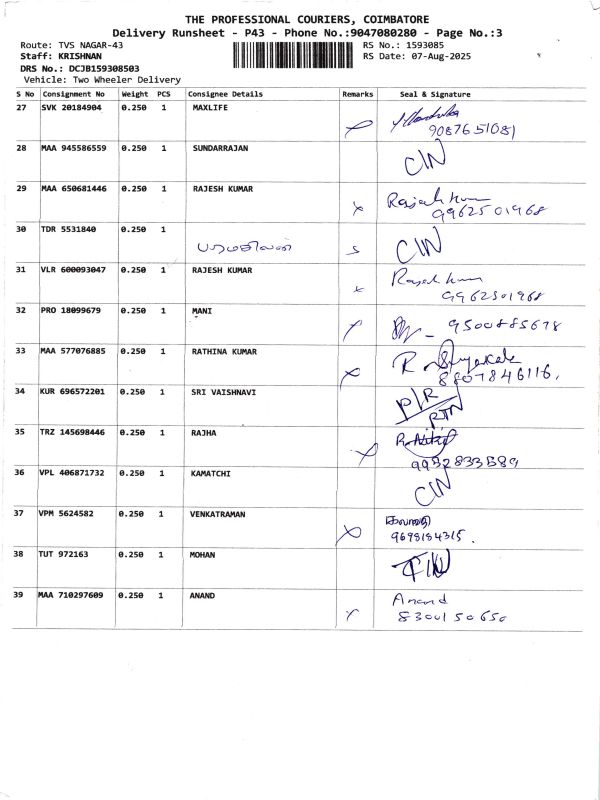 THE PROFESSIONAL COURIERS, COIMBATORE
Delivery Runsheet - P43 - Phone No.:9047080280 - Page No.:3
Route: TVS NAGAR-43 RS No.: 1593085
Staff: KRISHNAN RS Date: 07-Aug-2025
DRS No.: DCJB159308503
Vehicle: Two Wheeler Delivery
S No Consignment No Weight PCS Consignee Details Remarks Seal & Signature
27 SVK 20184904 0.250 1 MAXLIFE
9087651081
28 MAA 945586559 0.250 1 SUNDARRAJAN CIN
29 MAA 650681446 0.250 1 RAJESH KUMAR Rajesh kum
9962501968
30 TDR 5531840 0.250 1 CIN
31 VLR 600093047 0.250 1 RAJESH KUMAR Rajesh kum
9962501968
32 PRO 18099679 0.250 1 MANI
9500885678
33 MAA 577076885 0.250 1 RATHINA KUMAR
8807846116.
34 KUR 696572201 0.250 1 SRI VAISHNAVI P/R
RTN
35 TRZ 145698446 0.250 1 RAJHA
36 VPL 406871732 0.250 1 KAMATCHI CIN
37 VPM 5624582 0.250 1 VENKATRAMAN
9698184315.
38 TUT 972163 0.250 1 MOHAN
39 MAA 710297609 0.250 1 ANAND Anand
8300150650